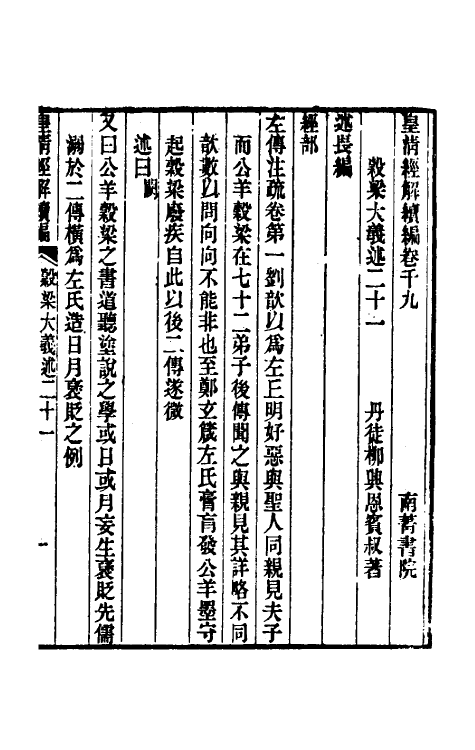 皇清經解續編卷千九　南菁書院
穀梁大義述二十一　丹徒柳興恩賓叔著
述長編
經部
左傳注疏卷第一劉歆以爲左丘明好惡與聖人同親見夫子
而公羊穀梁在七十二弟子後傳聞之與親見其詳略不同
歆數以問向向不能非也至鄭玄箴左氏膏肓發公羊墨守
起穀梁廢疾自此以後二傳遂微
述曰闕
又曰公羊穀梁之書道聽塗說之學或日或月妄生襃貶先儒
溺於二傳橫爲左氏造日月襃貶之例
皇清經解續編　穀梁大義述二十一　一